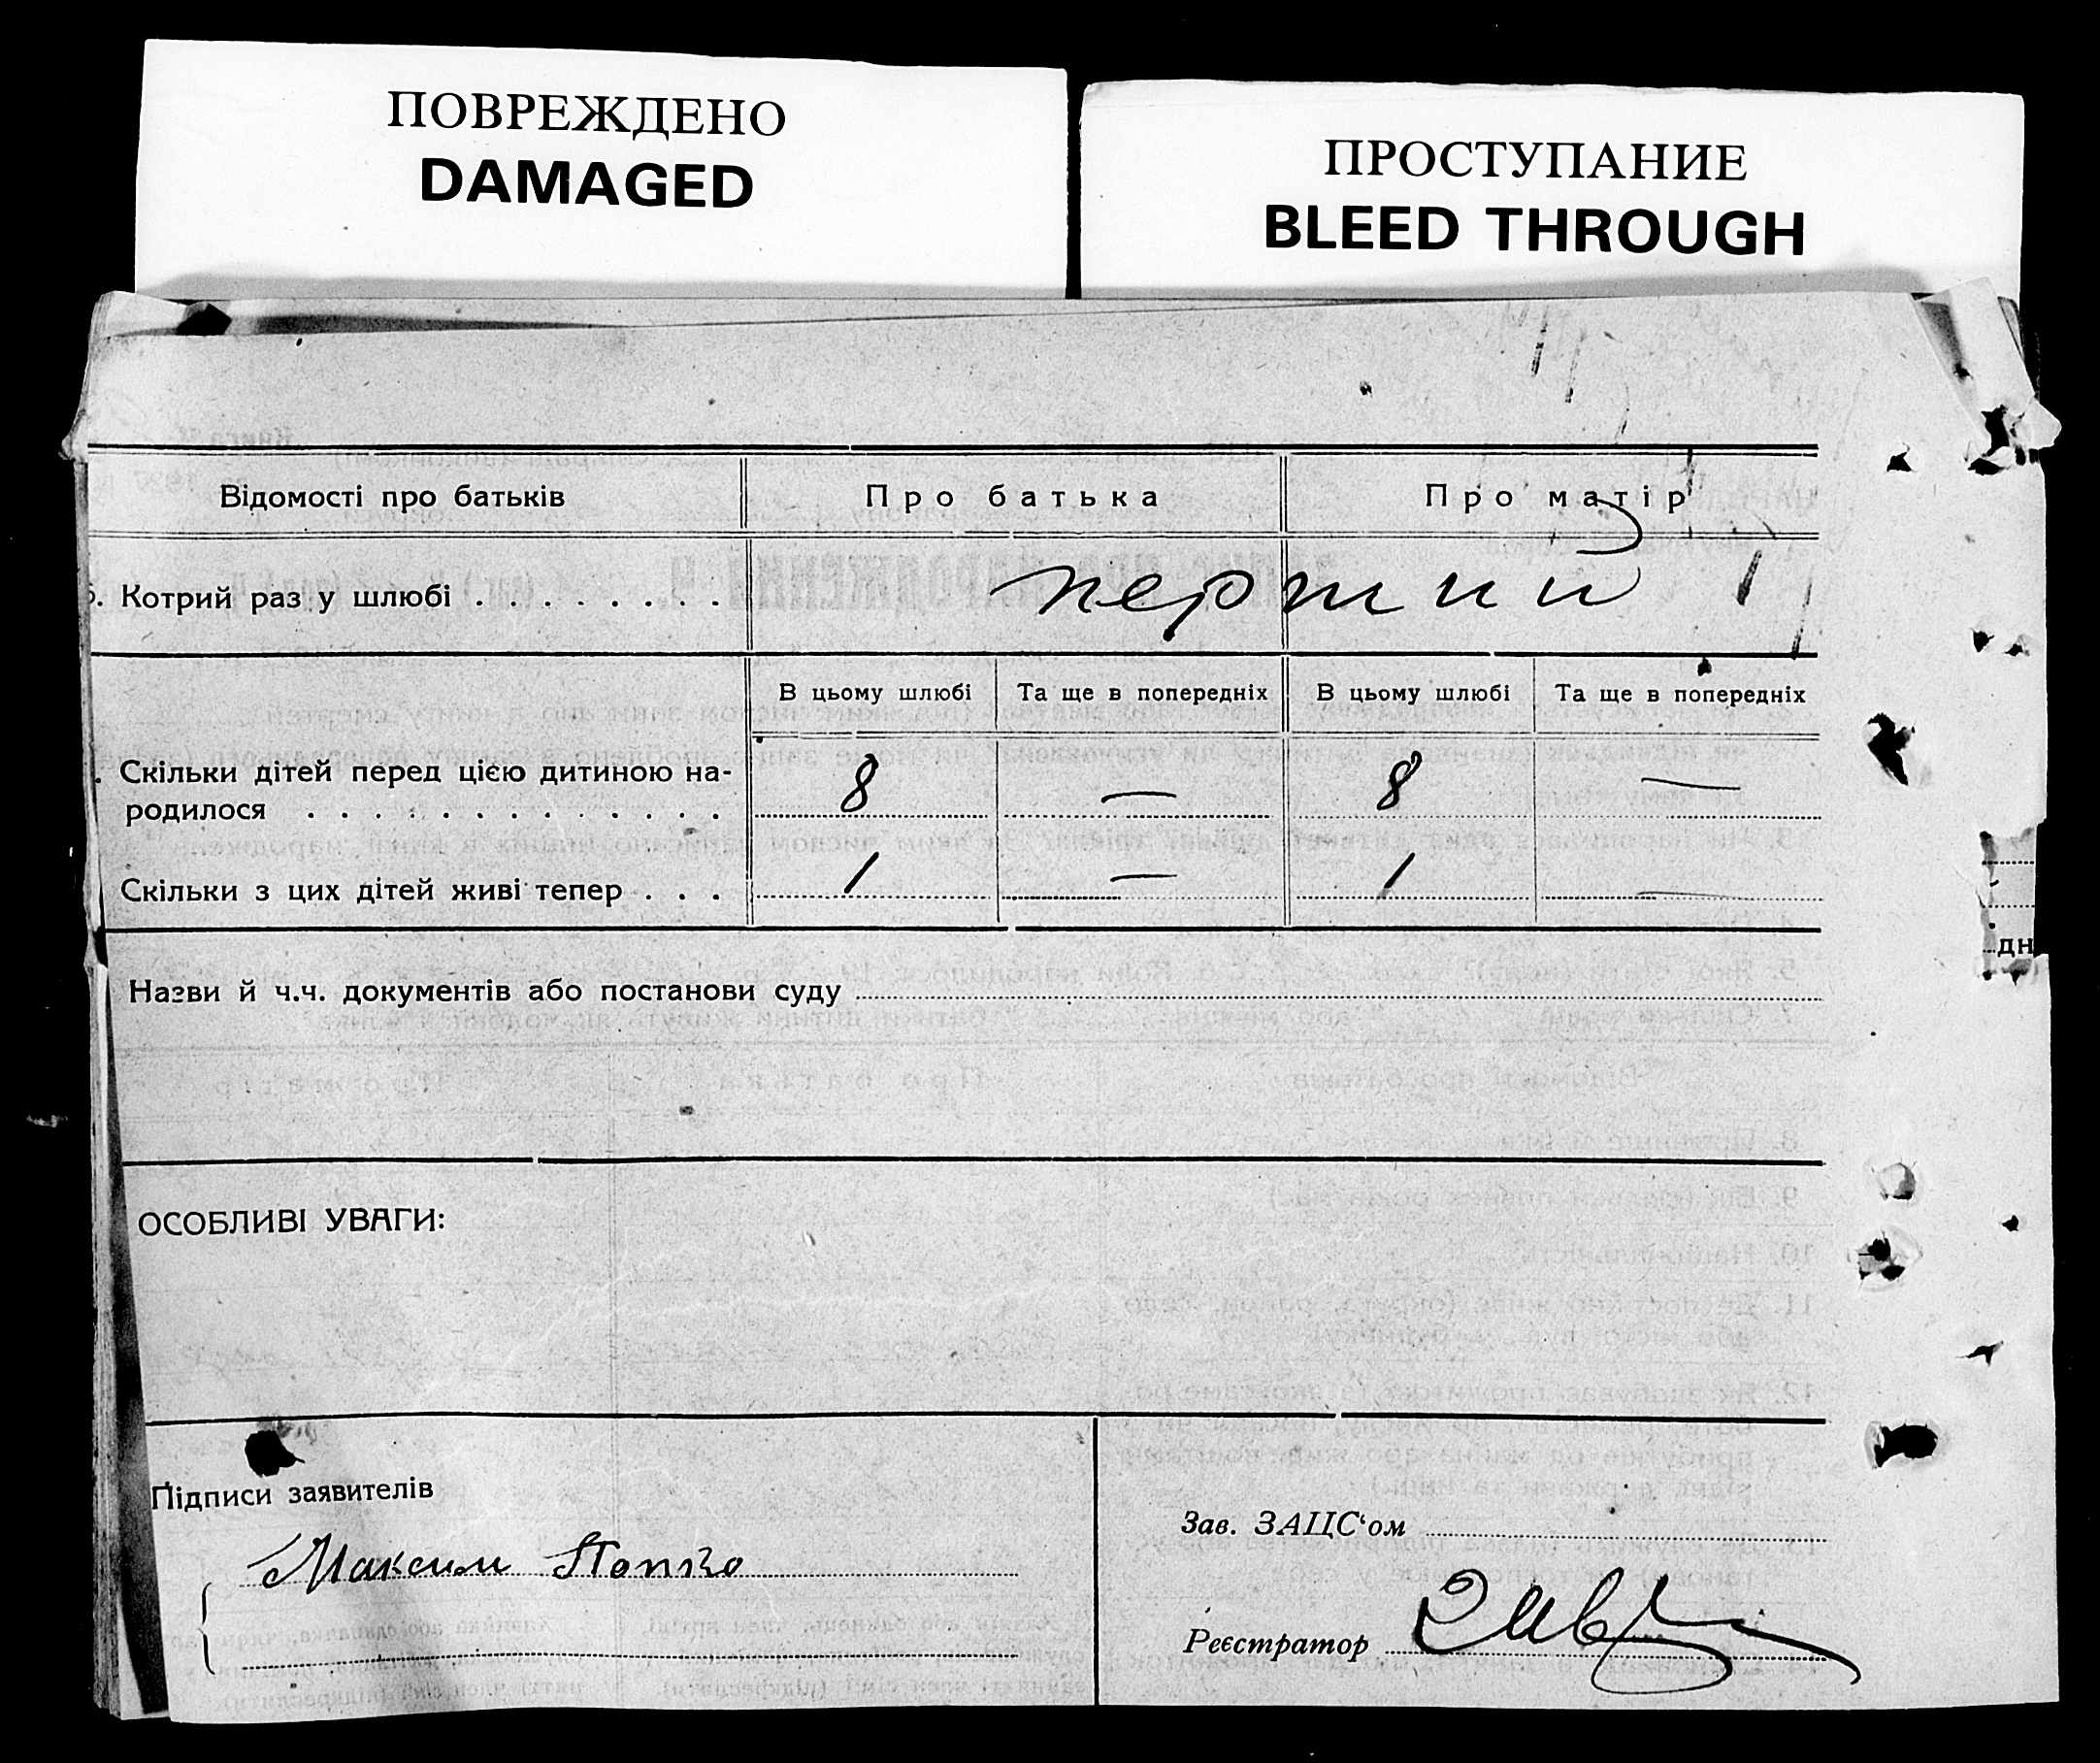 ПОВРЕЖДЕНО
DAMAGED
ПРОСТУПАНИЕ
BLEED THROUGH
Відомості про батьків
Про батька
Про матір
Котрий раз у шлюбі . . . . . . . .
перший
В цьому шлюбі
Та ще в попередніх
В цьому шлюбі
Та ще в попередніх
Скільки дітей перед цією дитиною на-
родилося . . . . . . . . . . . . .
8 — 8 —
Скільки з цих дітей живі тепер . . .
1 — 1 —
дн
Назви й ч.ч. документів або постанови суду
ОСОБЛИВІ УВАГИ:
Підписи заявителів
Максим
Зав. ЗАЦС‘ом
Реєстратор